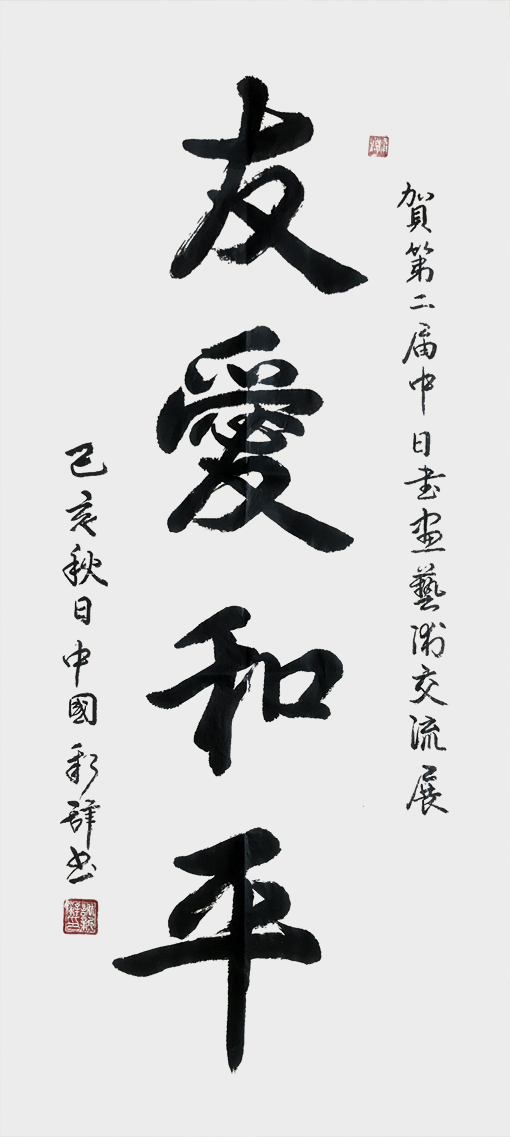 賀第二届中日書画藝術交流展
友愛和平
己亥秋日中國彩辞书